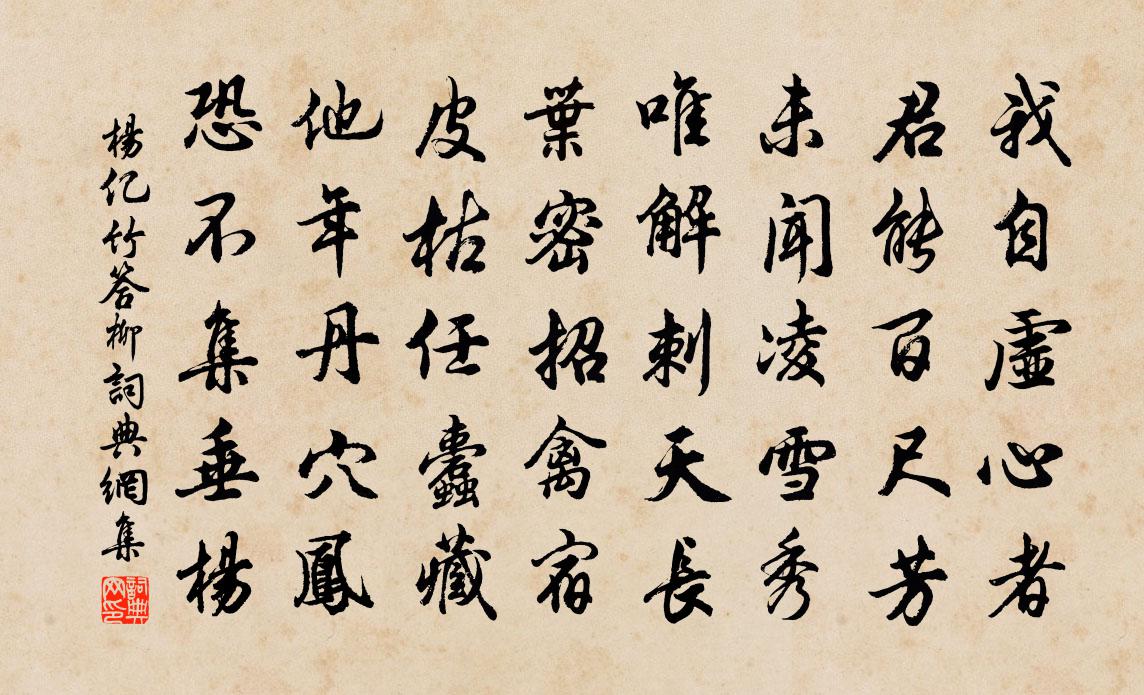 我自虛心者
君能百尺芳
未聞凌雪秀
唯解刺天長
葉密招禽宿
皮枯任蠹藏
他年丹穴鳳
恐不集垂楊
楊億竹答柳詞典網集
詞典網印